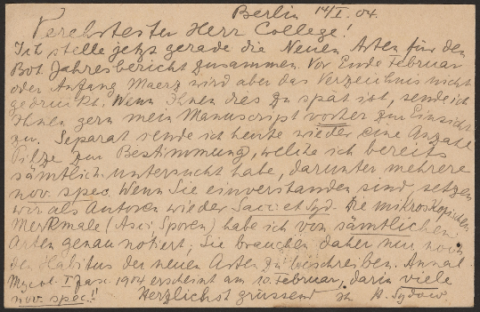 Berlin 14/I. 04.
Verehrtester Herr College!
Ich stelle jetzt gerade die Neuen Arten für den
Bot. Jahresbericht zusammen. Vor Ende Februar
oder Anfang Maerz wird aber das Verzeichnis nicht
gedruckt. Wenn Ihnen dies zu spät ist, sende ich
Ihnen gern mein Manuscript vorher zur Einsicht
zu. Separat sende ich heute wieder eine Anzahl
Pilze zur Bestimmung, welche ich bereits
sämtlich untersucht habe, darunter mehrere
nov. spec. Wenn Sie einverstanden sind, setzen
wir als Autoren wieder Sacc. et Syd. Die mikroskopischen
Merkmale (Asci, Sporen) habe ich von sämtlichen
Arten genau notiert; Sie brauchen daher nur noch
den Habitus der neuen Arten zu beschreiben. Annal.
Mycol. I 1904 erscheint am 10. Februar, darin viele
nov. spec.!! Herzlichst grüssend Ihr H. Sydow